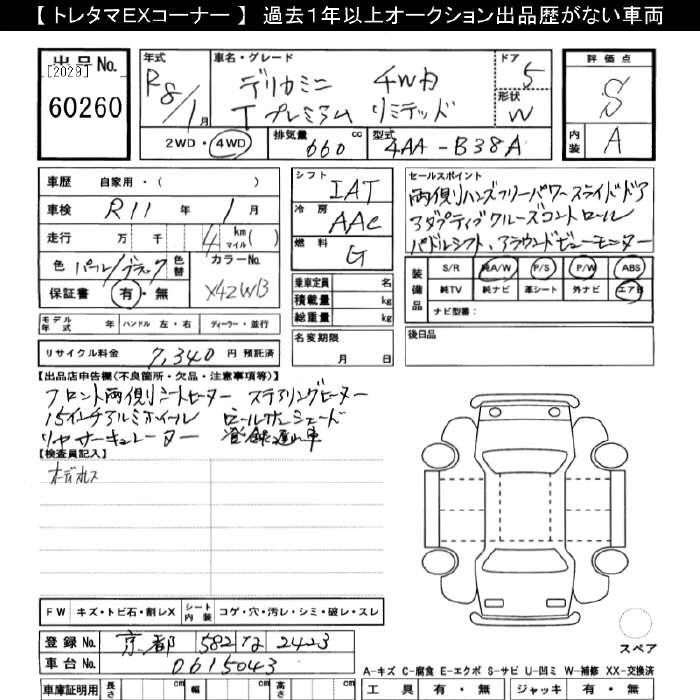 【 トレタマEXコーナー 】 過去１年以上オークション出品歴がない車両
出品 No.
[2029]
60260
年式
R8/1月
車名・グレード
デリカミニ 4WD
T プレミアム リミテッド
ドア
5
形状
W
2WD・4WD
排気量 660 cc
型式 4AA-B38A
評価点
S
内装
A
車歴 自家用・( )
車検 R11 年 1 月
走行 万 千 4 km マイル ( )
色 パール/ブラック 色替
カラーNo.
X42WB
保証書 有・無
シフト
IAT
冷房
AAC
燃料
G
乗車定員 名
積載量 kg
総重量 kg
セールスポイント
両側ハンズフリーパワースライドドア
アダプティブクルーズコントロール
パドルシフト、アラウンドビューモニター
装備品
S/R 純A/W P/S P/W ABS
純TV 純ナビ 革シート 外ナビ エアB
ナビ型番:
モデル年式 年 ハンドル 左・右 ディーラー・並行
リサイクル料金 7,340 円 預託済
名変期限
月 日
後日品
【出品店申告欄(不良箇所・欠品・注意事項等)】
フロント両側シートヒーター ステアリングヒーター
15インチアルミホイール ロールサンシェード
リヤサーキュレーター 登録遅れ車
【検査員記入】
オーディオレス
FW キズ・トビ石・割レX シート内装 コゲ・穴・汚レ・シミ・破レ・スレ
登録 No. 京都 582 な 2423
車台 No. 0615043
車庫証明用 長さ cm 幅 cm 高さ cm
スペア
A-キズ C-腐食 E-エクボ S-サビ U-凹ミ W-補修 XX-交換済
工具 有・無 ジャッキ 有・無